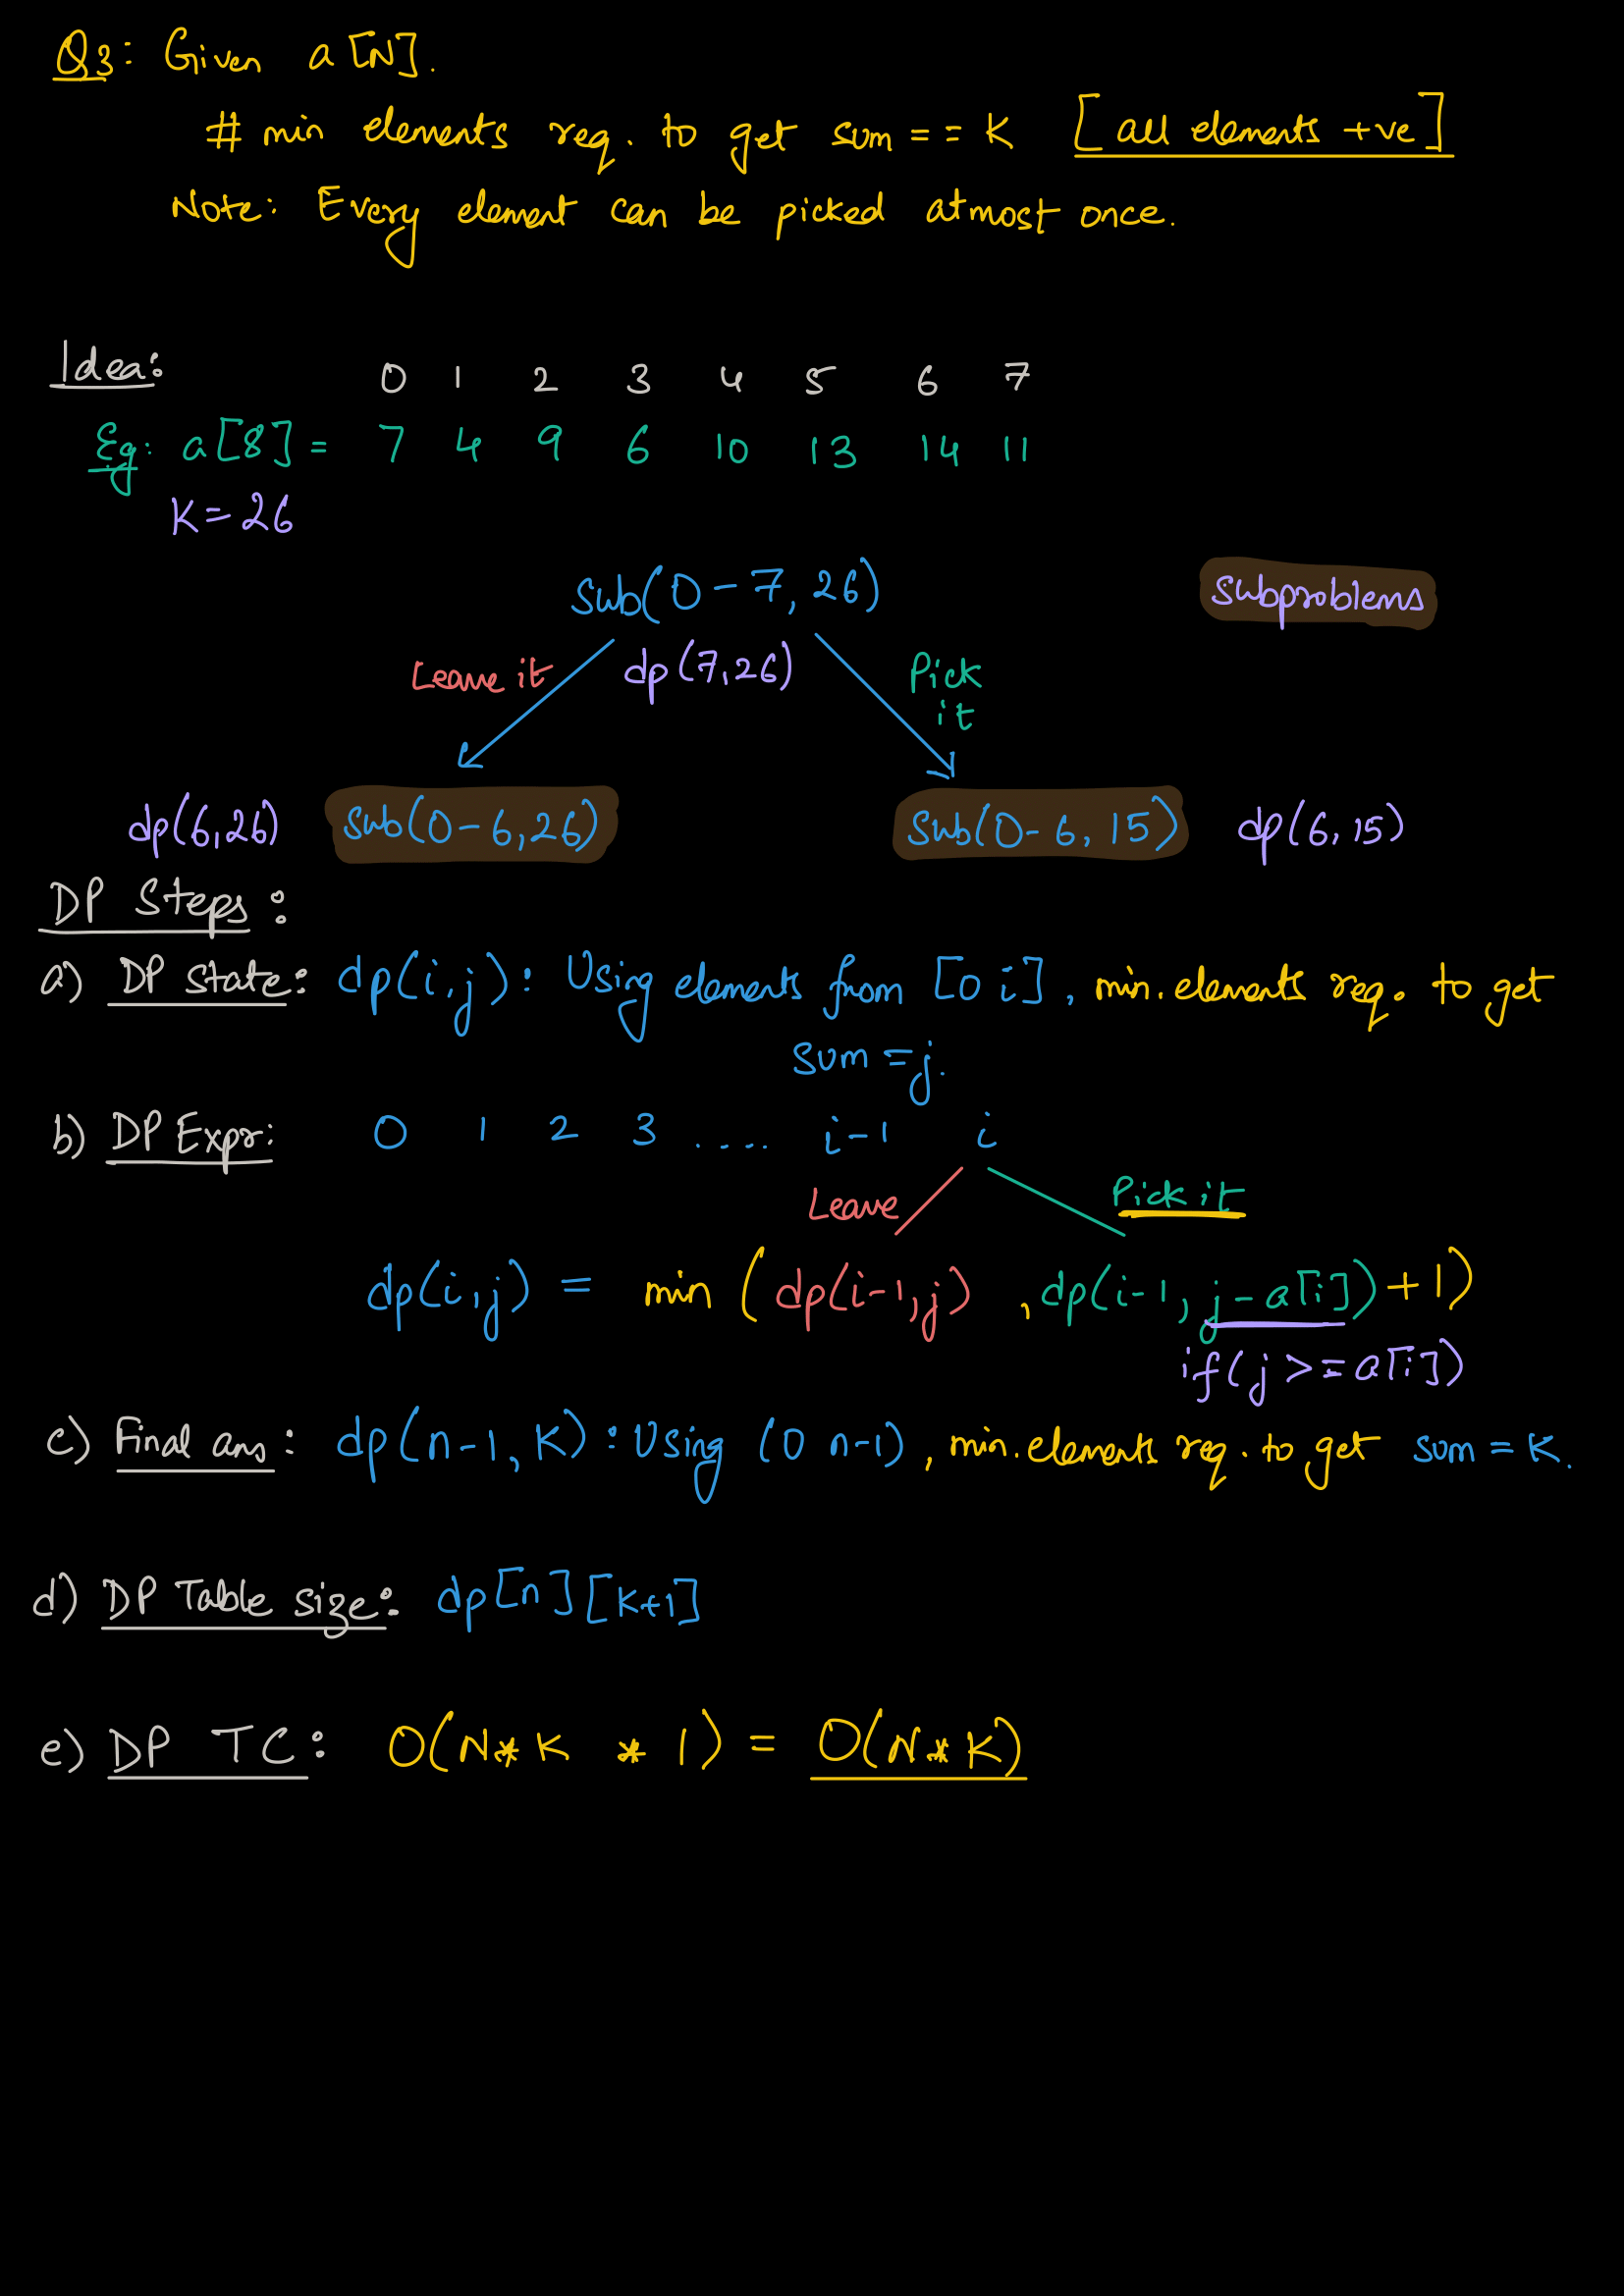 Q3: Given a[N].
# min elements req. to get sum == K [all elements +ve]
Note: Every element can be picked atmost once.
Idea: 0 1 2 3 4 5 6 7
Eg: a[8] = 7 4 9 6 10 13 14 11
K = 26
Sub(0-7, 26) Subproblems
Leave it dp(7,26) Pick
it
dp(6,26) Sub(0-6,26) Sub(0-6, 15) dp(6,15)
DP Steps:
a) DP State: dp(i,j): Using elements from [0 i], min. elements req. to get
sum = j.
b) DP Expr: 0 1 2 3 .... i-1 i
Leave Pick it
dp(i,j) = min (dp(i-1,j) , dp(i-1, j-a[i]) + 1)
if(j >= a[i])
c) Final ans: dp(n-1, K): Using (0 n-1), min. elements req. to get sum = K.
d) DP Table size: dp[n][K+1]
e) DP TC: O(N*K * 1) = O(N*K)